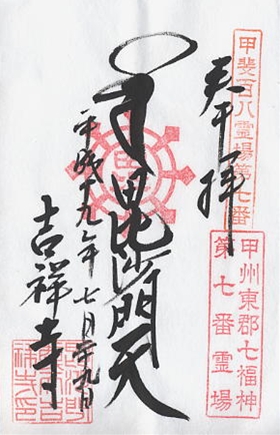 甲斐百八霊場第七番
奉拝
甲州東郡七福神
第七番霊場
毘沙門天
平成十九年七月廿九日
吉祥寺